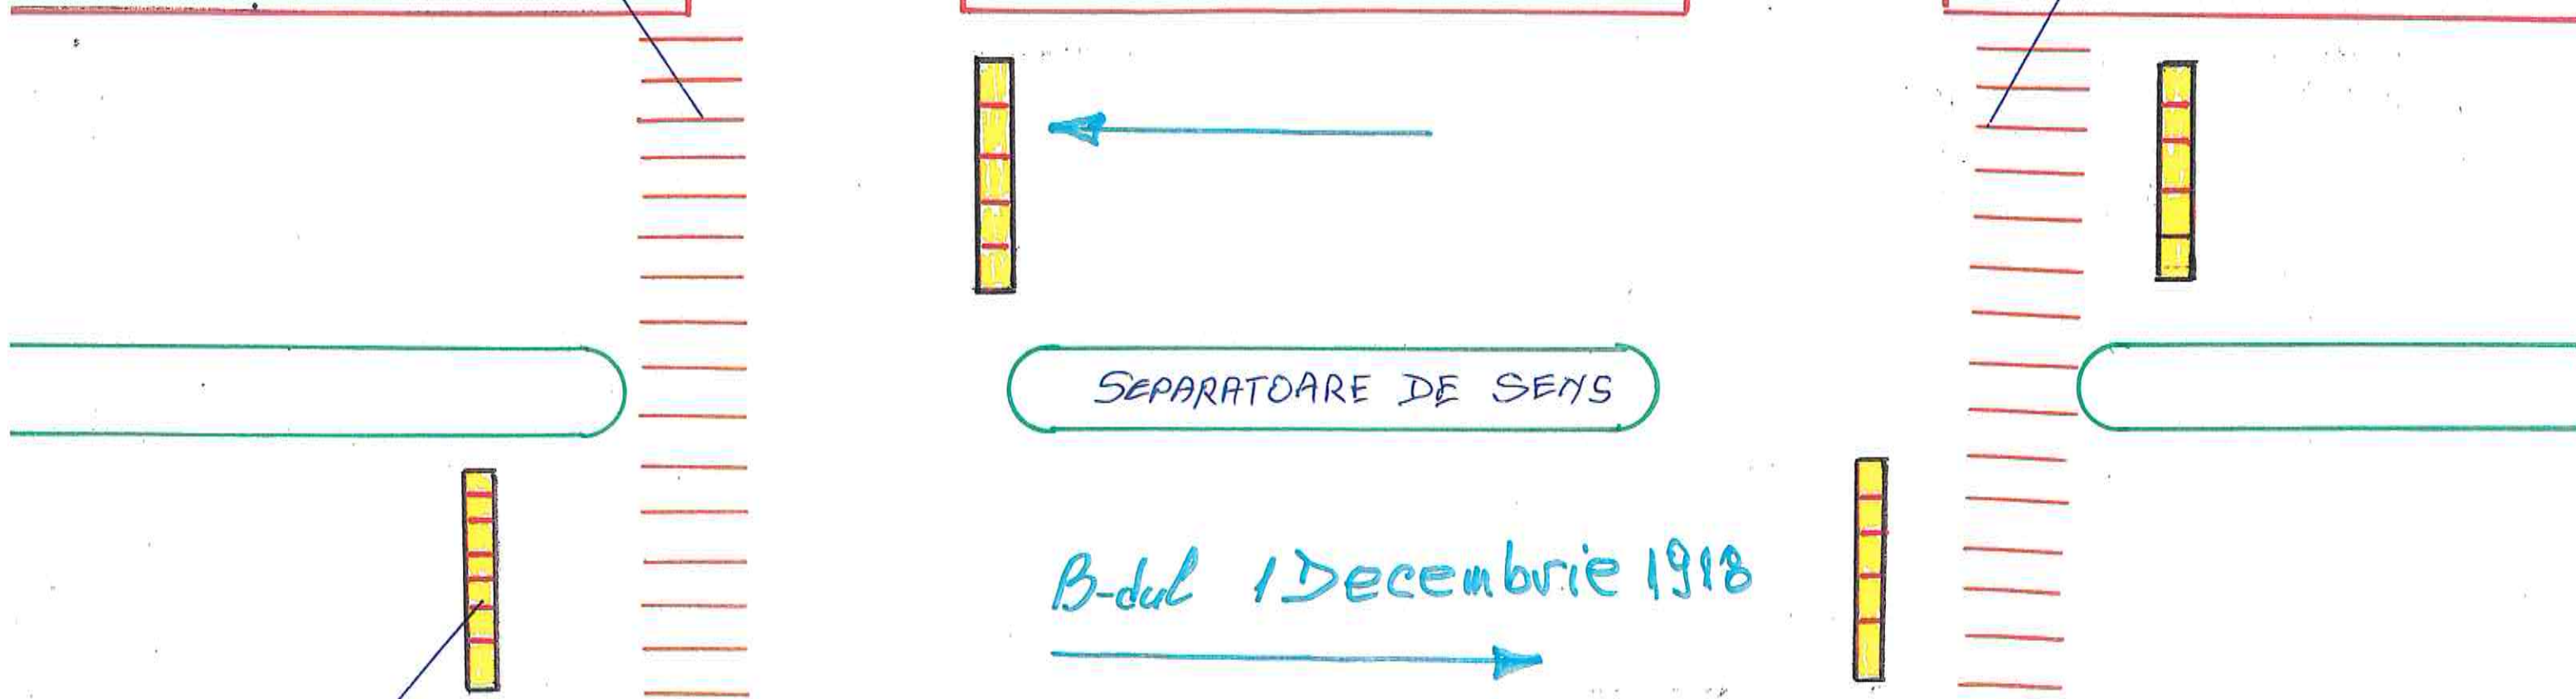 SEPARATOARE DE SENS
B-dul 1 Decembrie 1918